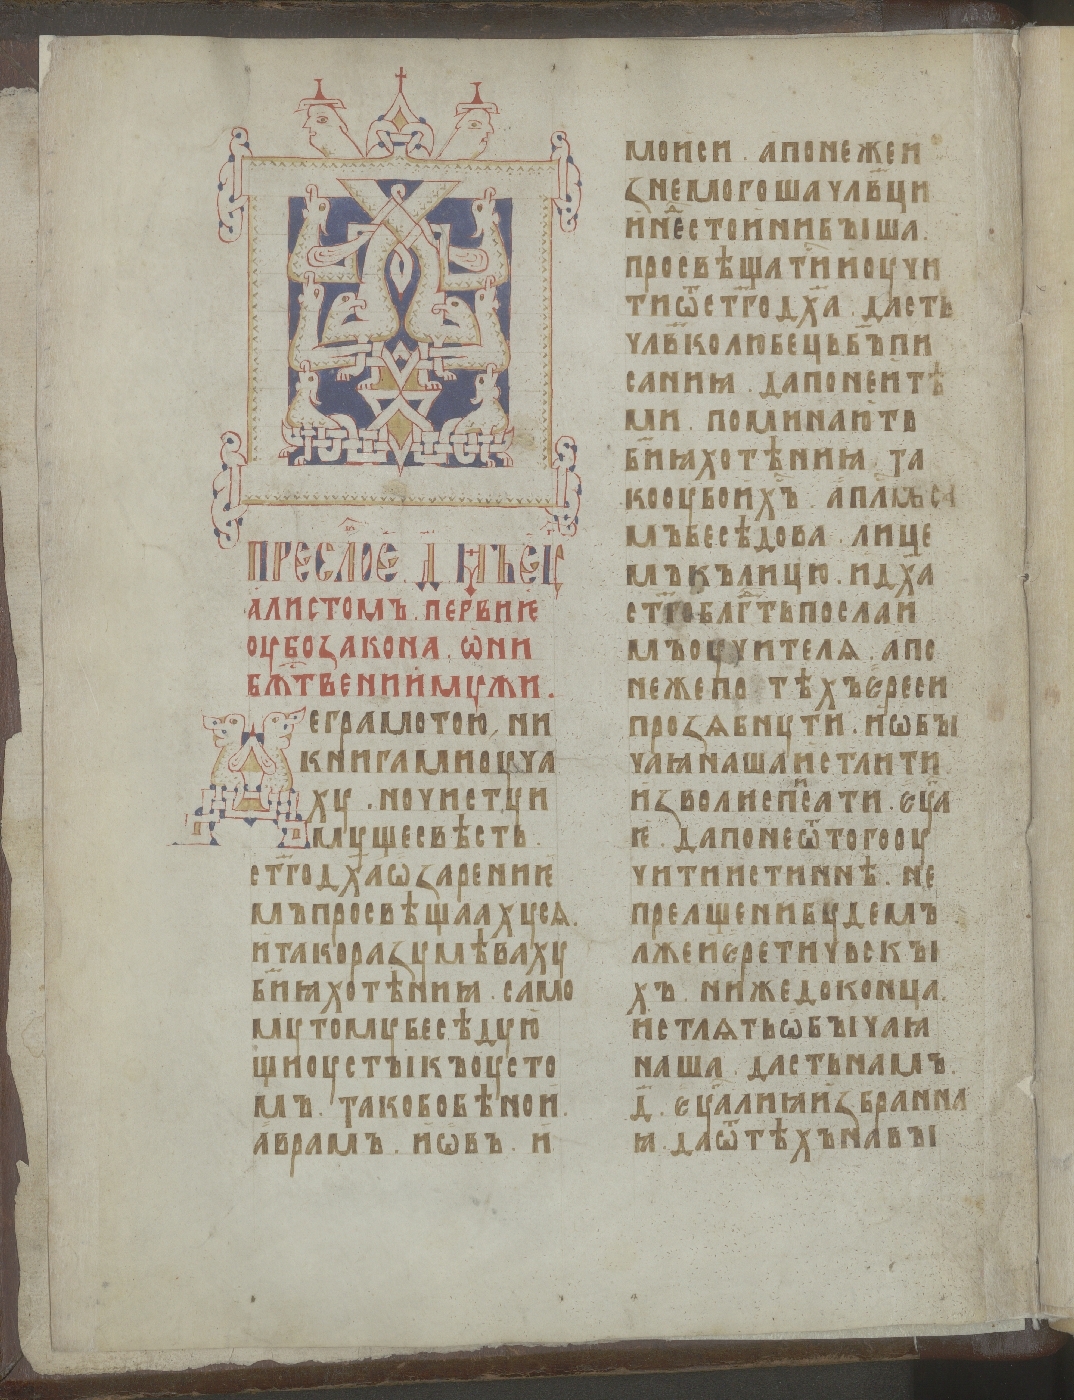 ПРЕСЛОЕ Д҃ МЪ ЕѴ҃Г
АЛИСТОМЪ . ПЕРВИІЕ
ОУБОꙀАКОНА . ѠНИ
БЖ҃ТВЕНИЙ МУЖИ .
ЕГРАМОТОЮ, НИ
КНИГАМИ ОЦУЧА
ХУ . НО ЧИСТУИ
МУЩЕ СВѢСТЬ .
СТ҃ГО Д҃ХА ѠꙀАРЕНИІЕ
МЪ ПРОСВѢЩААХУСѦ .
И ТАКО РАꙀУМѢВАХУ
Б҃ИꙖ ХОТѢНИꙖ . САМО
МУ ТОМУ БЕСѢДУЮ
ЩИ ОУСТЫ КЪ ОУСТО
МЪ . ТАКО БО БѢ НОИ .
АВРАМЪ . ИѠВЪ . И
МОИСИ . А ПОНЕЖЕ И
ꙀНЕМОГОША ЧЛ҃ВЦИ
И НЕ̑СТОЙНИ БЫША .
ПРОСВѢЩАТИ И ОУЧИ
ТИ Ѿ СТ҃ГО Д҃ХА . ДАСТЬ
ЧЛ҃ВКОЛЮБЕЦЬ Б҃Ъ ПИ
САНИꙖ . ДА ПОНЕ И ТѢ
МИ . ПОМИНАЮТЬ
Б҃ИꙖ ХОТѢНИꙖ ТА
КО ОУБО И Х҃Ъ . АПЛ҃МЬ СА
МЪ БЕСѢДОВА . ЛИЦЕ
МЪ КЪ ЛИЦЮ . И Д҃ХА
СТ҃ГО БЛГ҃ТЬ ПОСЛА И
МЪ ОУЧИТЕЛЯ . А ПО
НЕЖЕ ПО ТѢХЪ ЄРЕСИ
ПРОꙀѦБНУТИ . И ѠБЫ
ЧАꙖ НАША ИСТЛИТИ .
ИꙀВОЛИ СП҃САТИ . ЄУ҃А
ІЕ . ДА ПОНЕ Ѿ ТОГО ОУ
ЧИТИ ИСТИННѢ . НЕ
ПРЕЛЩЕНИ БУДЕМЪ
ЛЖЕИ ЄРЕТИЧЬСКЫ
ХЪ . НИЖЕ ДО КОНЦА .
ИСТЛѦТЬ ѠБЫЧАꙖ
НАША . ДАСТЬ НАМЪ .
Д҃ . ЄУ҃АЛИꙖ ИꙀБРАННА
Ꙗ . ДА Ѿ ТѢХЪ НАВЫ